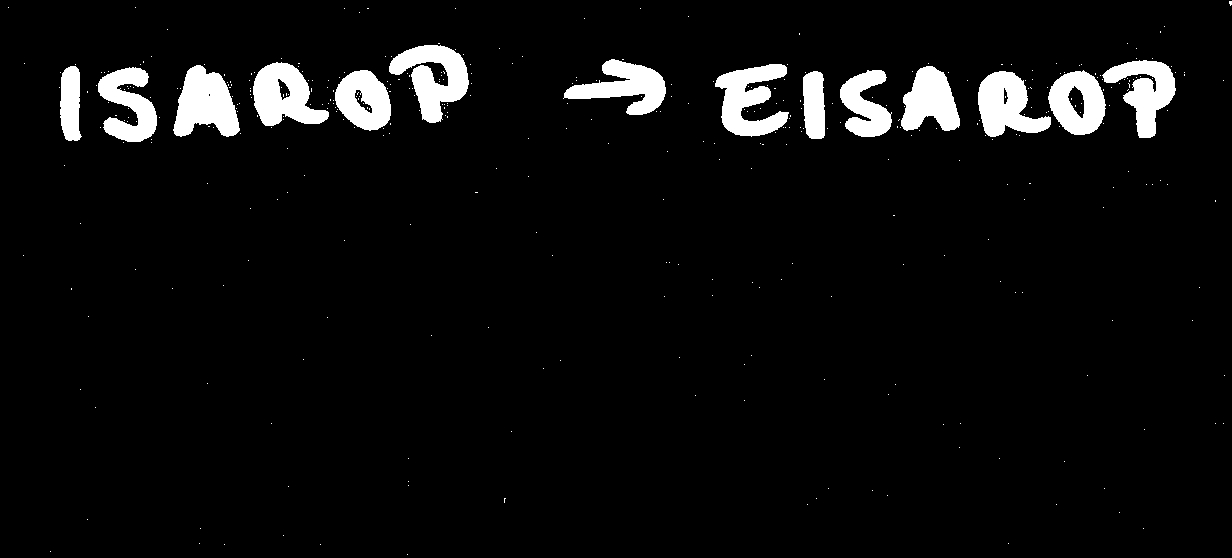 ISAROP → EISAROP